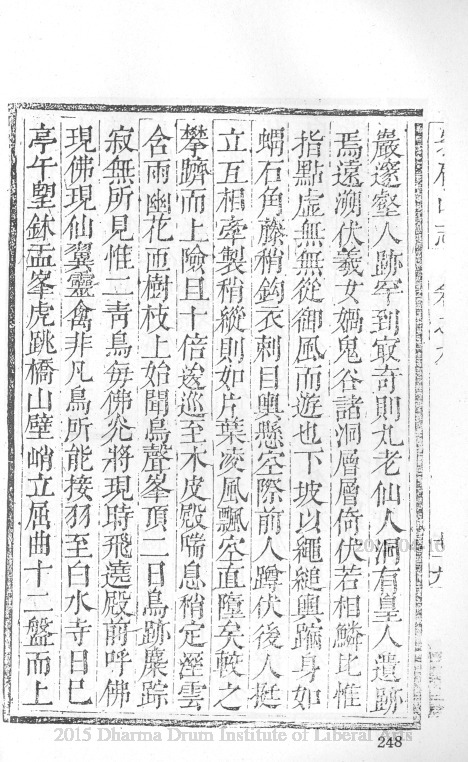 巖邃壑人跡罕到最奇則九老仙人洞有皇人遺跡
焉遠溯伏羲女媧鬼谷諸洞層層倚伏若相鱗比惟
指點虛無無從御風而遊也下坡以繩縋輿躡身如
蝟石角藤稍鉤衣刺目輿懸空際前人蹲伏後人挺
立互相牽製稍縱則如片葉凌風飄空直墮矣較之
攀躋而上險且十倍逡巡至木皮殿喘息稍定溼雲
含雨幽花西樹枝上始聞鳥聲峯頂二日鳥跡麋踪
寂無所見惟二青鳥每佛光將現時飛遶殿前呼佛
現佛現仙翼靈禽非凡鳥所能接羽至白水寺日已
亭午望鉢盂峯虎跳橋山壁峭立屈曲十二盤而上
山志
248
2015 Dharma Drum Institute of Liberal Arts